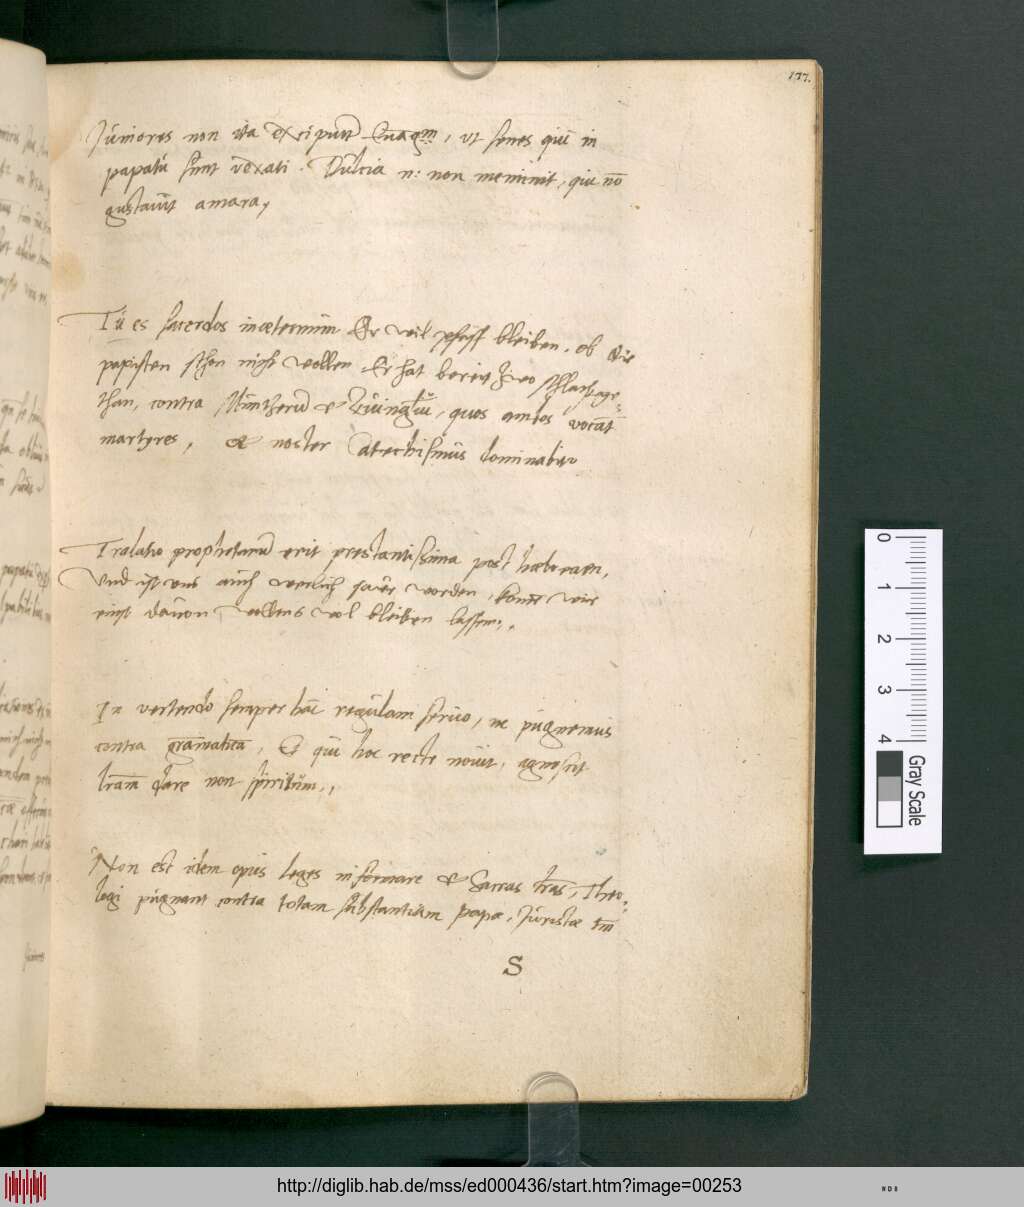 177.
Juniores non ita excipiunt Euagm:, ut senes qui in
papatu sunt vexati. Dulcia n: non meminit, qui nō
gustauit amara,
Tu es sacerdos in æternum Er wil pfaff bleiben, ob die
papisten schon nicht wollen Er hat bereit zwo schlacht
than, contra Müntzerū et Zuinglīu, quos ambos vocāt
martyres, et noster Catechismus dominabitur
Tralatio prophetarū erit prestantissima post hæbraeam,
Vnd ist vns auch warlich saur worden, komē wir
einst dauon wollens wol bleiben lassen.,
In vertendo semper hāc regulam seruo, ne pugnemus
contra grāmaticā, Et qui hoc recte nouit, agnoscit
lrām dare non spiritum.,
Non est idem opus leges informare et sacras lrās, Theo:
logi pugnant contra totam substantiam papæ, Juristæ tm̄
S
http://diglib.hab.de/mss/ed000436/start.htm?image=00253
0
1
2
3
4
Gray Scale